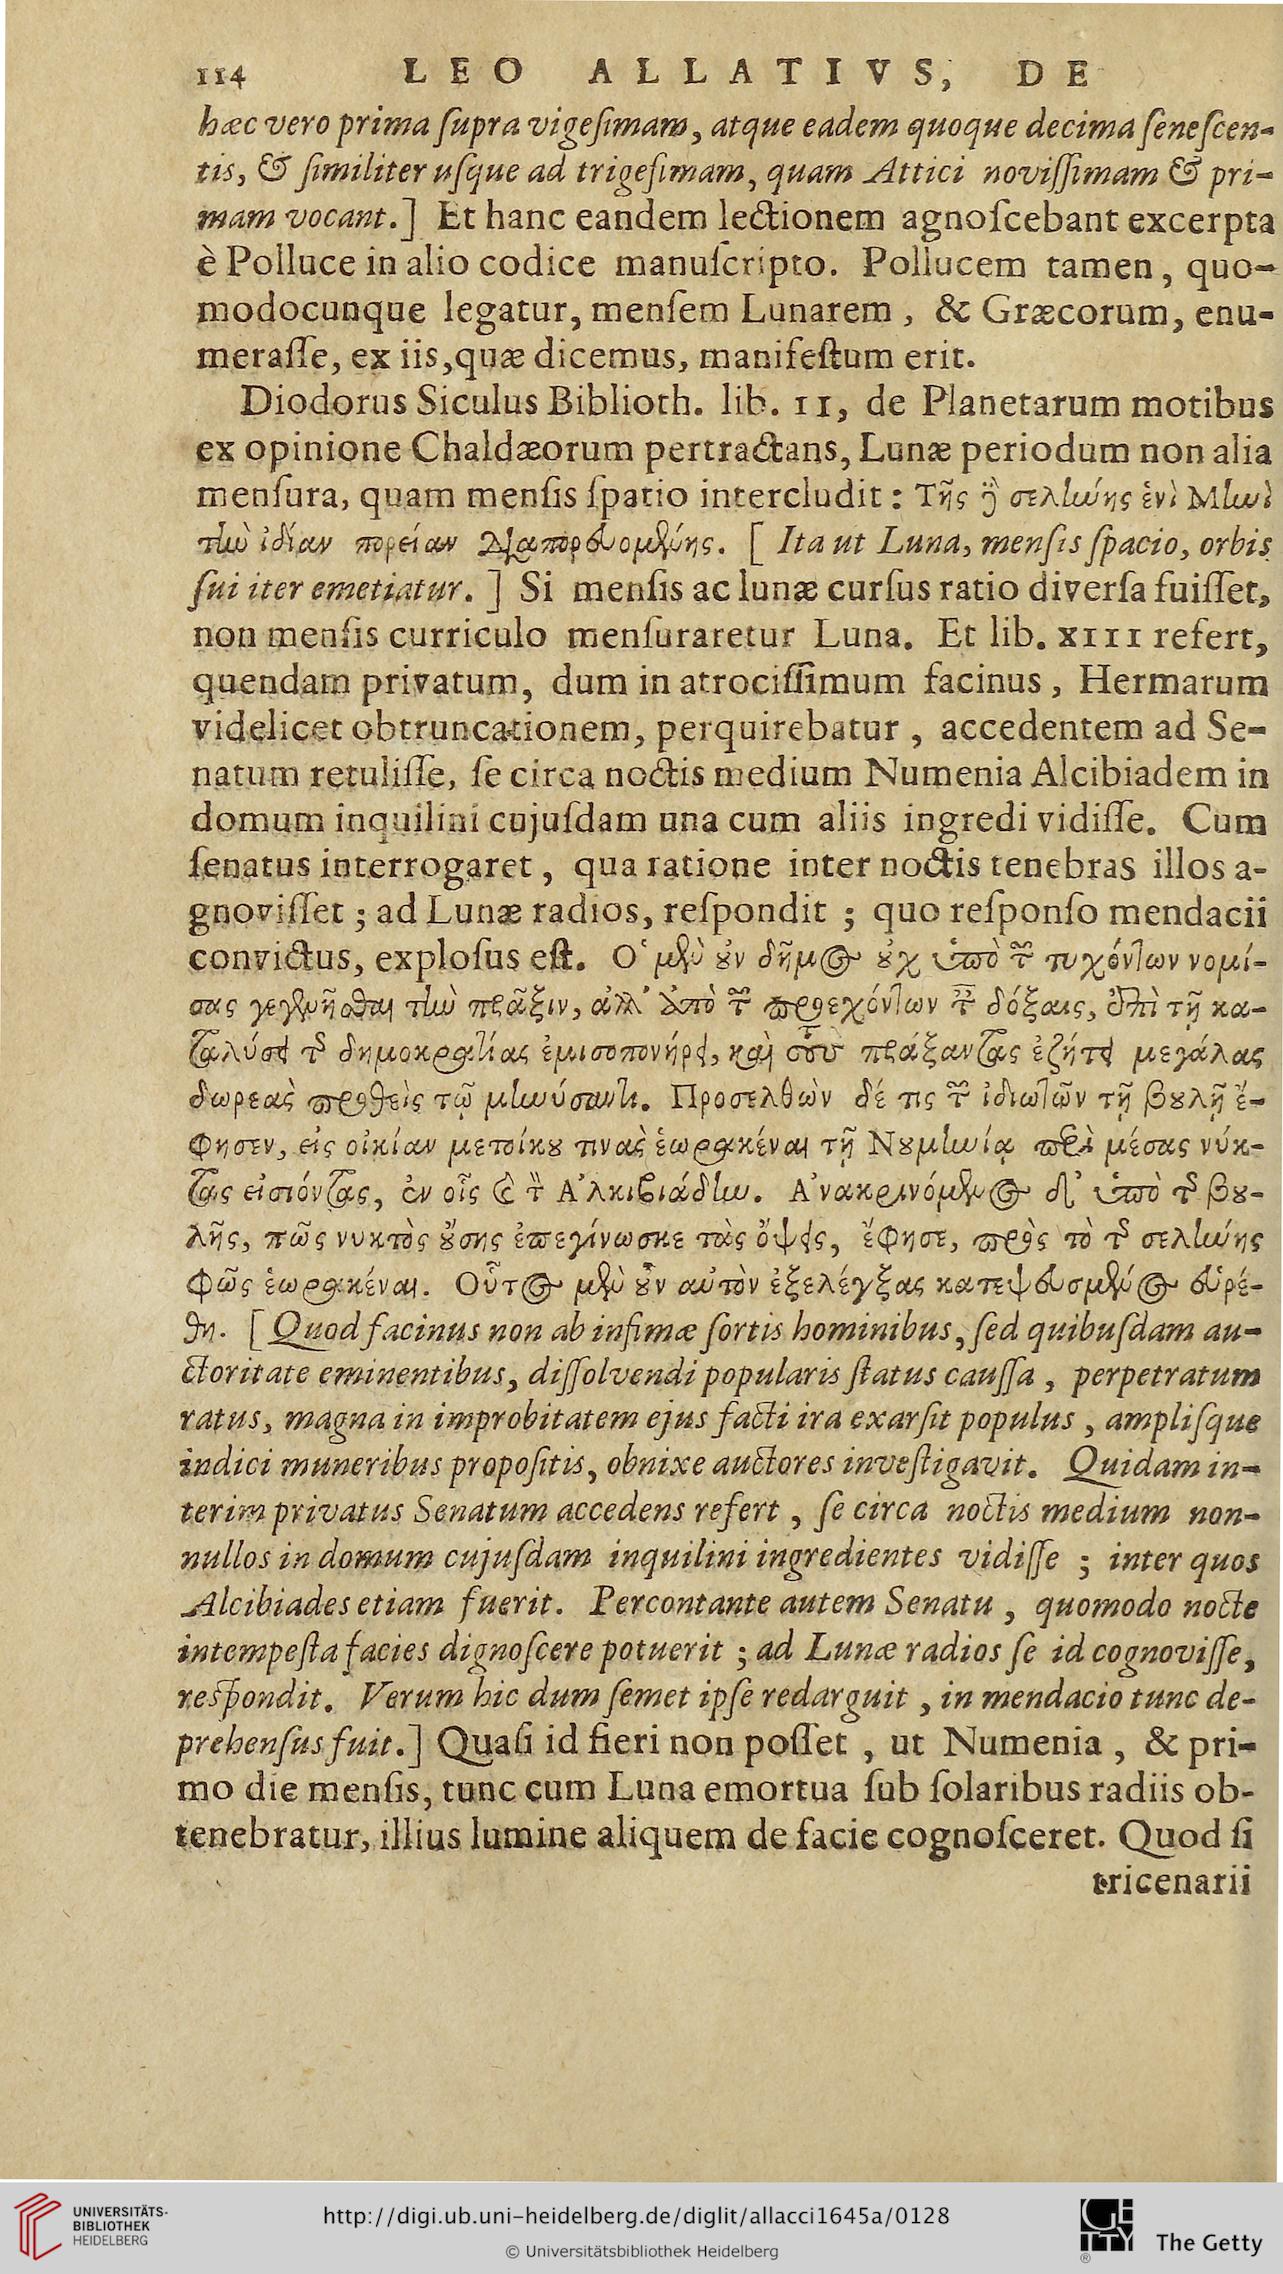 114 LEO ALLATIVS, DE
hæc vero prima ſupra vigeſimam, atque eadem quoque decima ſeneſcen-
tis, & ſimiliter uſque ad trigeſimam, quam Attici noviſſimam & pri-
mam vocant.] Et hanc eandem lectionem agnoſcebant excerpta
è Polluce in alio codice manuſcripto. Pollucem tamen, quo-
modocunque legatur, menſem Lunarem, & Græcorum, enu-
meraſſe, ex iis, quæ dicemus, manifeſtum erit.
Diodorus Siculus Biblioth. lib. 11, de Planetarum motibus
ex opinione Chaldæorum pertractans, Lunæ periodum non alia
menſura, quam menſis ſpatio intercludit: Τῆς ἢ σελωύης ἑνὶ Μωὶ
τὼ ἰδίαν πορείαν διαπορευομένης. [ Ita ut Luna, menſis ſpacio, orbis
ſui iter emetiatur.] Si menſis ac lunæ curſus ratio diverſa fuiſſet,
non menſis curriculo menſuraretur Luna. Et lib. XIII refert,
quendam privatum, dum in atrociſſimum facinus, Hermarum
videlicet obtruncationem, perquirebatur, accedentem ad Se-
natum retuliſſe, ſe circa noctis medium Numenia Alcibiadem in
domum inquilini cujuſdam una cum aliis ingredi vidiſſe. Cum
ſenatus interrogaret, qua ratione inter noctis tenebras illos a-
gnoviſſet; ad Lunæ radios, reſpondit; quo reſponſo mendacii
convictus, exploſus eſt. Ο῾ μὲν οὖν δῆμος οὐχ ὑπὸ τῶν τυχόντων νομί-
σας γεγενῆσθαι τὴν πρᾶξιν, ἀλλ' ἀπὸ τῶν προεχόντων ταῖς δόξαις, ἐπὶ τῇ κα-
ταλύσει τῆς δημοκρατίας ἐμισοπονήρει, καὶ τοὺς πράξαντας ἐζήτει μεγάλας
δωρεὰς προθεὶς τῷ μηνύσαντι. Προσελθὼν δέ τις τῶν ἰδιωτῶν τῇ βουλῇ ἔ-
φησεν, εἰς οἰκίαν μετοίκου τινὰς ἑωρακέναι τῇ Νουμηνίᾳ περὶ μέσας νύκ-
τας εἰσιόντας, ἐν οἷς καὶ τὸν Α᾿λκιβιάδην. Α᾿νακρινόμενος δ' ὑπὸ τῆς βου-
λῆς, πῶς νυκτὸς οὔσης ἐπεγίνωσκε τὰς ὄψεις, ἔφησε, πρὸς τὸ τῆς σελήνης
φῶς ἑωρακέναι. Οὗτος μὲν οὖν αὐτὸν ἐξελέγξας κατεψευσμένος εὑρέ-
θη. [ Quod facinus non ab infimæ ſortis hominibus, ſed quibuſdam au-
ctoritate eminentibus, diſſolvendi popularis ſtatus cauſſa, perpetratum
ratus, magna in improbitatem ejus facti ira exarſit populus, ampliſque
indici muneribus propoſitis, obnixe auctores inveſtigavit. Quidam in-
terim privatus Senatum accedens refert, ſe circa noctis medium non-
nullos in domum cujuſdam inquilini ingredientes vidiſſe; inter quos
Alcibiades etiam fuerit. Percontante autem Senatu, quomodo nocte
intempeſta facies dignoſcere potuerit; ad Lunæ radios ſe id cognoviſſe,
reſpondit. Verum hic dum ſemet ipſe redarguit, in mendacio tunc de-
prehenſus fuit.] Quaſi id fieri non poſſet, ut Numenia, & pri-
mo die menſis, tunc cum Luna emortua ſub ſolaribus radiis ob-
tenebratur, illius lumine aliquem de facie cognoſceret. Quod ſi
tricenarii
UNIVERSITÄTS-
BIBLIOTHEK
HEIDELBERG
http://digi.ub.uni-heidelberg.de/diglit/allacci1645a/0128
© Universitätsbibliothek Heidelberg
GETTY
®
The Getty